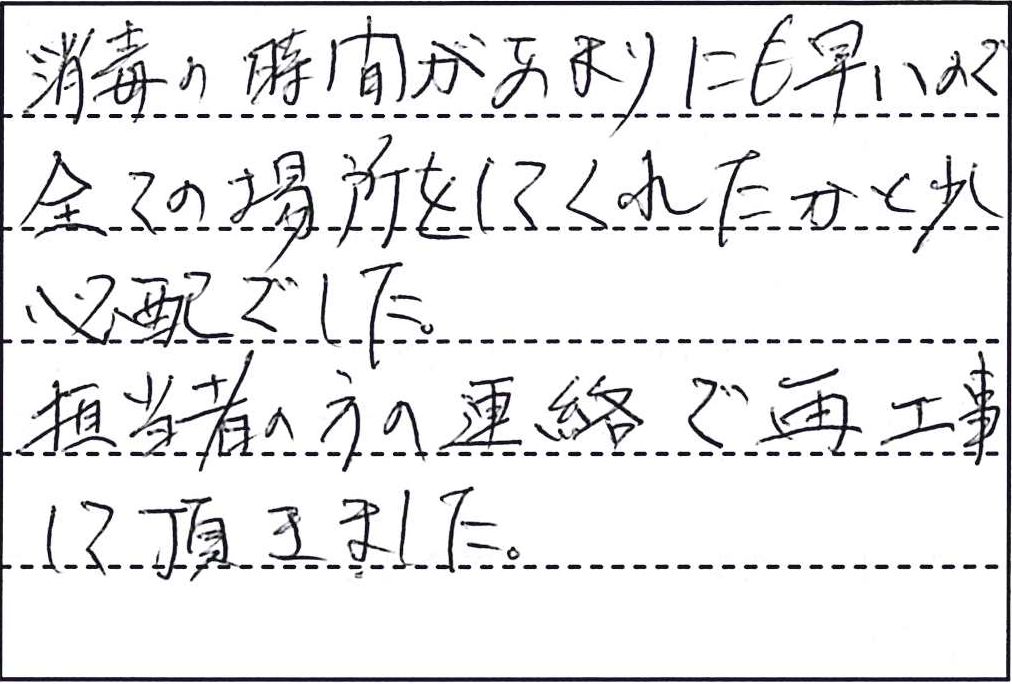 消毒の時間があまりにも早いので
全ての場所をしてくれたかと少し
心配でした。
担当者の方の連絡で再工事
して頂きました。